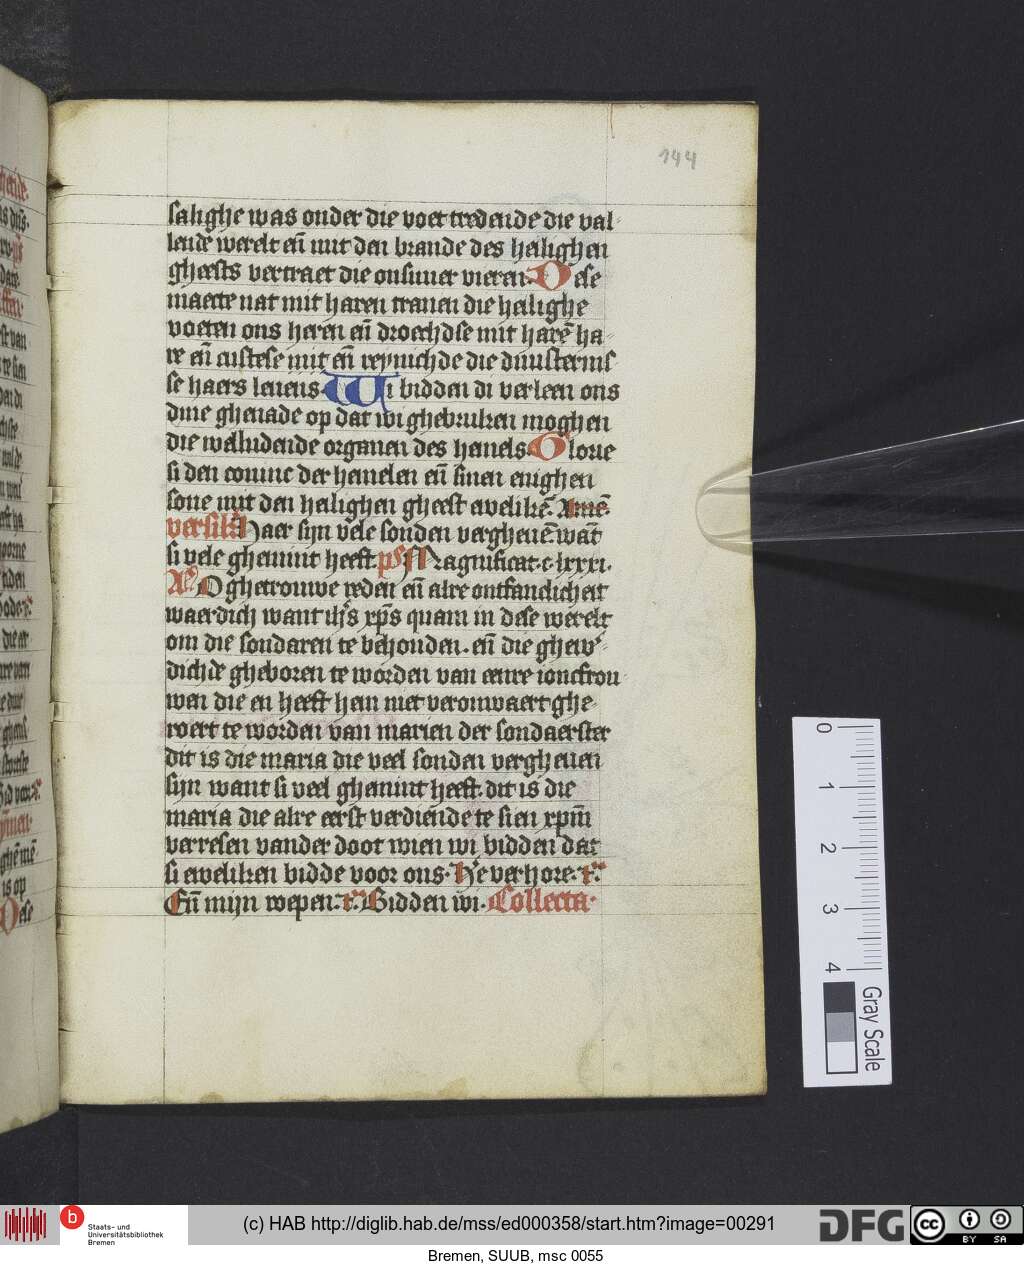 144
salighe was onder die voet tredende die val-
lende werelt eñ mit den brande des heilighen
gheests vertraet die onsuuer vieren. Dese
maecte nat mit haren tranen die heilighe
voeten ons heren eñ droechdse mit harē ha-
re eñ custese mit eñ reynichde die duusternis
se haers leuens. Wi bidden di verleen ons
dine ghenade op dat wi ghebruken moghen
die welludende organen des hemels. Glorie
si den coninc der hemelen eñ sinen enighen
sone mit den heilighen gheest ewelikē. Amē.
versikel Haer sijn vele sonden vergheuē. wāt
si vele ghemint heeft. ps Magnificat. c. lxxxi.
O ghetrouwe reden eñ alre ontfanclicheit
waerdich want ihs xps quam in dese werelt
om die sondaren te behouden. eñ die
dichde gheboren te worden van eenre ioncfrou
wen die en heeft hem niet veronwaert ghe-
roert te worden van marien der sondaerster
dit is die maria die veel sonden vergheuen
sijn want si veel ghemint heeft. dit is die
maria die alre eerst verdiende te sien xpm
verresen vander doot wien wi bidden dat
si eweliken bidde voor ons. He verhore. r.
Eñ mijn roepen. r. Bidden wi. Collecta.
0
1
2
3
4
Gray Scale
Staats- und
Universitätsbibliothek
Bremen
(c) HAB http://diglib.hab.de/mss/ed000358/start.htm?image=00291
DFG
CC BY SA
Bremen, SUUB, msc 0055